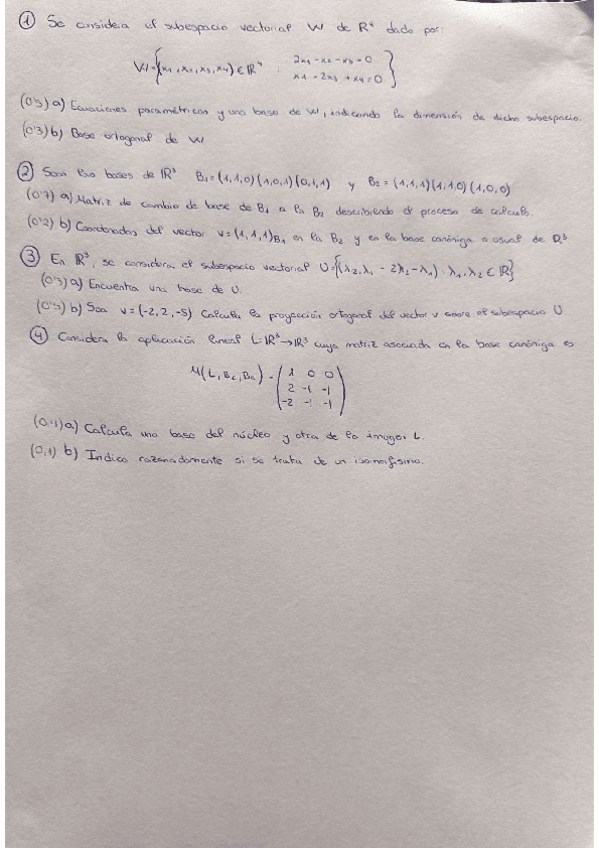 ① Se considera el subespacio vectorial W de R⁴ dado por:
W={(x₁,x₂,x₃,x₄) ∈ R⁴ : 2x₁-x₂-x₃=0
x₁-2x₃+x₄=0}
(0'5) a) Ecuaciones paramétricas y una base de W, indicando la dimensión de dicho subespacio.
(0'3) b) Base ortogonal de W
② Sean las bases de R³ B₁=(1,1,0)(1,0,1)(0,1,1) y B₂=(1,1,1)(1,1,0)(1,0,0)
(0'7) a) Matriz de cambio de base de B₁ a la B₂ describiendo el proceso de cálculo.
(0'2) b) Coordenadas del vector v=(1,1,1)B₁ en la B₂ y en la base canóniga o usual de R³
③ En R³, se considera el subespacio vectorial U={(λ₂,λ₁-2λ₂-λ₁): λ₁,λ₂ ∈ R}
(0'5) a) Encuentra una base de U.
(0'5) b) Sea v=(-2,2,-5) Calcula la proyección ortogonal del vector v sobre el subespacio U
④ Considera la aplicación lineal L=R³→R³ cuya matriz asociada en la base canóniga es
M(L,Bc,Bc)=(1 0 0
2 -1 -1
-2 -1 -1)
(0'1) a) Calcula una base del núcleo y otra de la imagen L.
(0,1) b) Indica razonadamente si se trata de un isomorfismo.